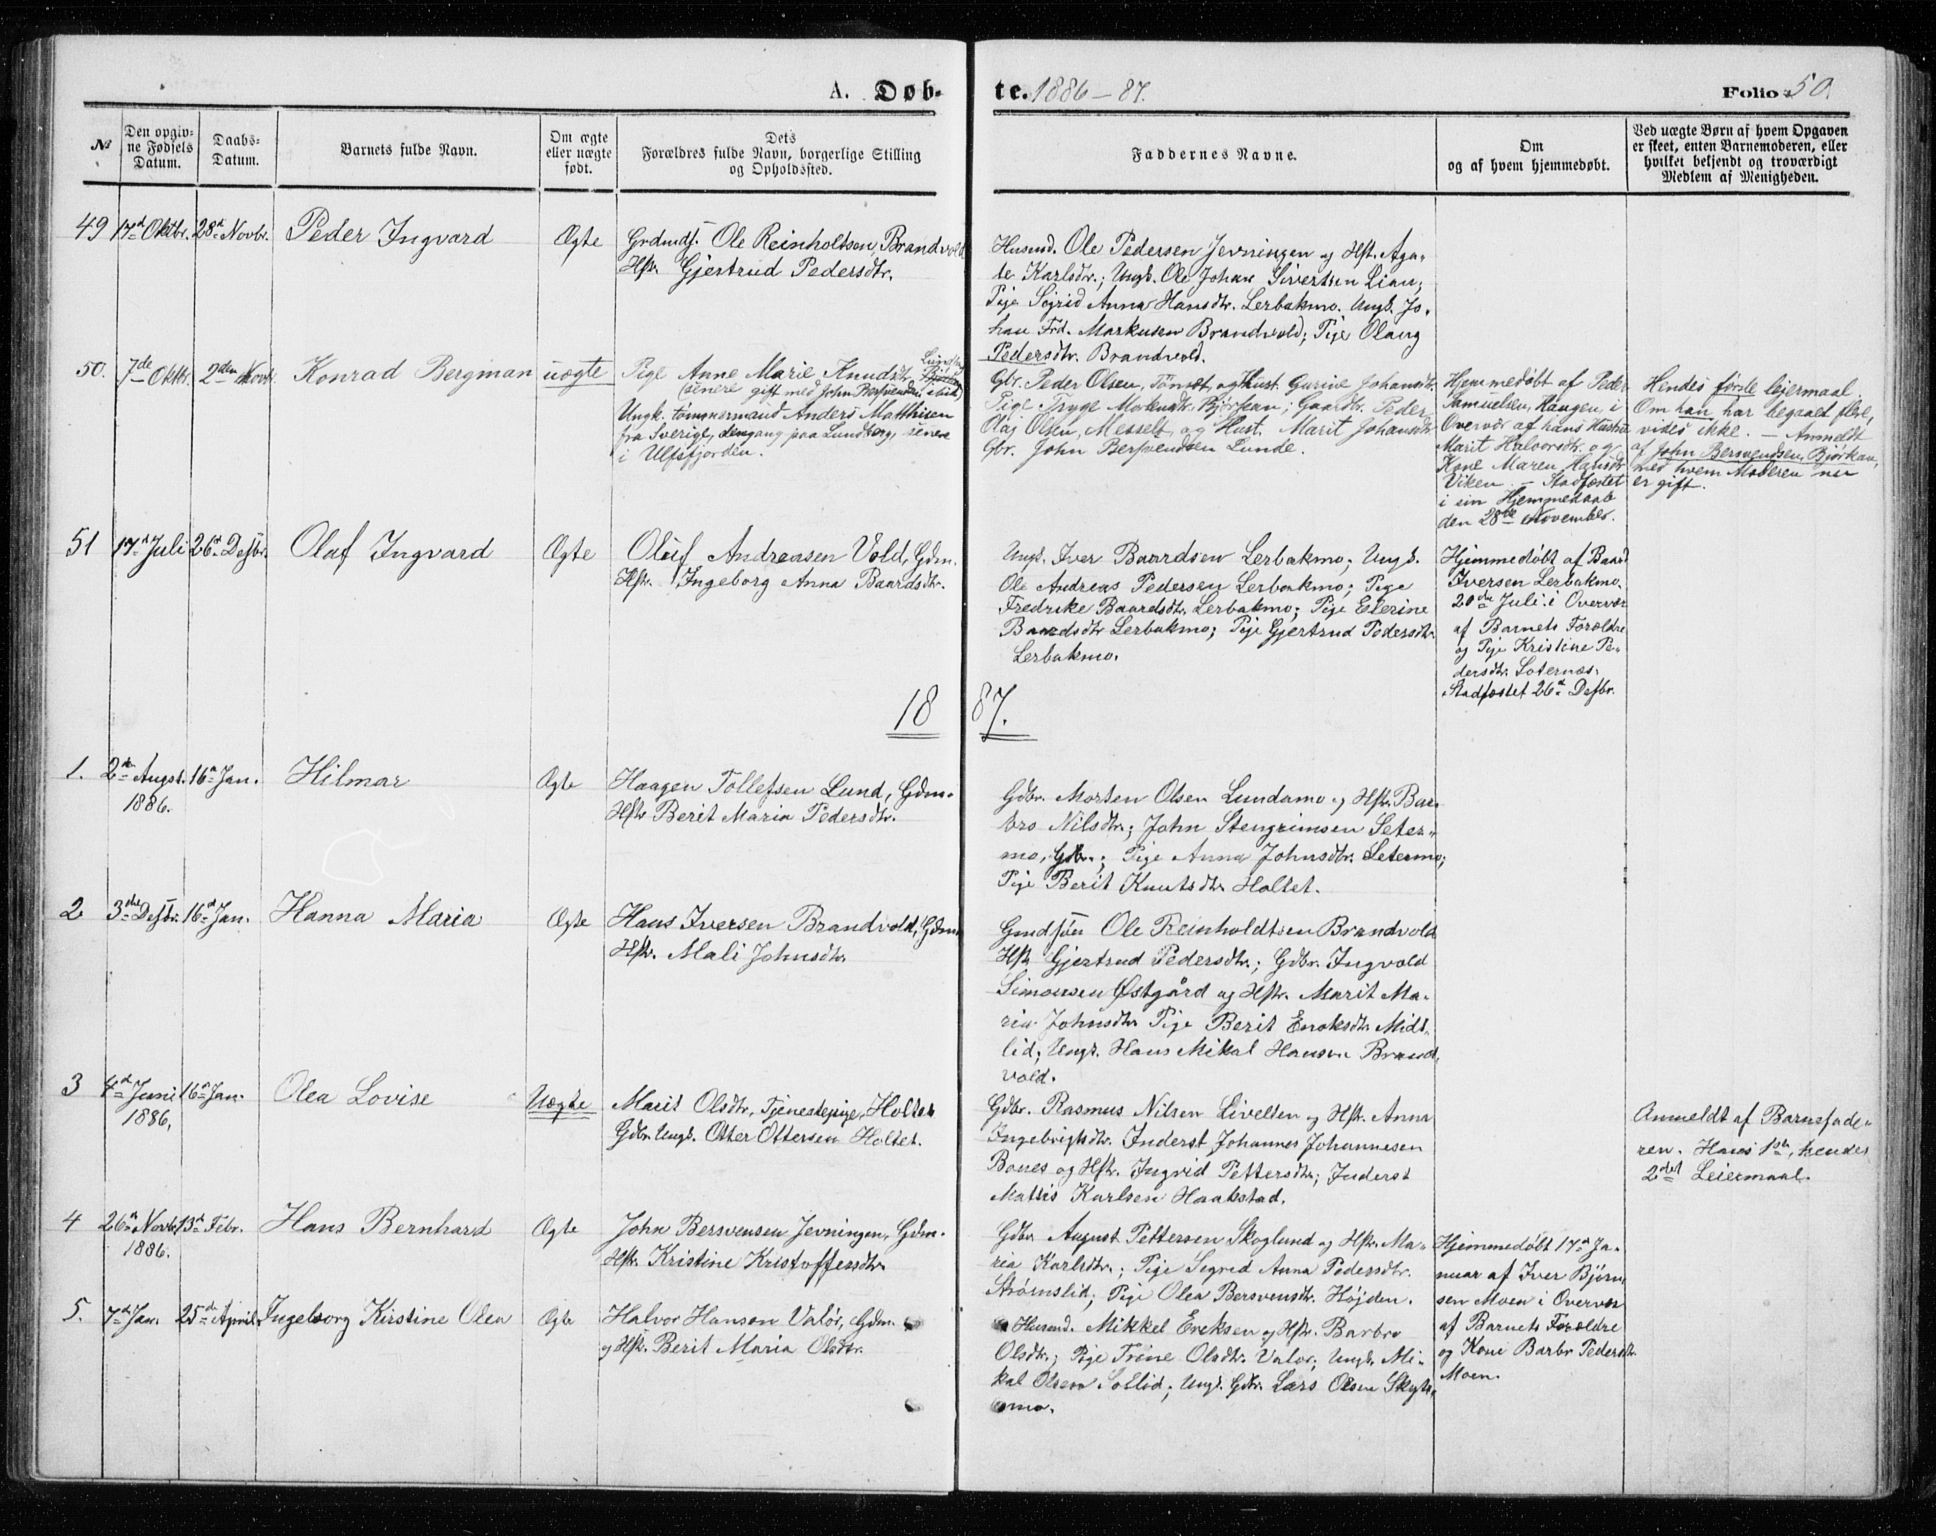 A. Døbte. 1886-87. Folio 50.
№
Den opgiv-
ne Fødsels
Datum.
Daabs-
Datum.
Barnets fulde Navn.
Om ægte
eller uægte
født.
Dets
Forældres fulde Navn, borgerlige Stilling
og Opholdssted.
Faddernes Navne.
Om
og af hvem hjemmedøbt.
Ved uægte Børn af hvem Opgaven
er skeet, enten Barnemoderen, eller
hvilket bekjendt og troværdigt
Medlem af Menigheden.
49 17d Oktbr. 28d Novbr. Peder Ingvard Ægte
Grdmdf. Ole Reinholtsen Brandvold
Hst. Gjertrud Pedersdtr.
Husmd. Ole Pedersen Jevningen og Hst. Aga-
te Karlsdtr.; Ungk. Ole Johan Sivertsen Lian;
Pige Sigrid Anna Hansdtr. Lerbakmo. Ungk. Jo-
han Frd. Markusen Brandvold; Pige Olaug
Pedersdtr. Brandvold.
50. 7de Oktbr. 2den Novbr. Konrad Bergman uægte
Pige Anne Marie Knudsdtr.
(senere gift med John Bersvendsen
Ungk. tømmermand Anders Matthisen
fra Sverige, dengang paa Lundberg, senere
i Ulfsfjorden.
Gbr. Peder Olsen, Tømset, og Hust. Gurine Johansdtr
Olaj Olsen, Messelt, og Hust. Marit Johansdtr
Gbr. John Bersvendsen Lunde.
Hjemmedøbt af Peder
Samuelsen, Haugen, i
Overvær af hans Hustru
Marit Halvorsdtr. og
Kone Maren Hansdtr
Viken. - Stadfæstet
i sin Hjemmedaab
den 28de November.
Hendes første leiermaal
Om han har begaaet flere,
vides ikke. - Anmeldt
af John Bersvendsen, Bjørkan,
med hvem Moderen nu
er gift.
51 17d Juli 26d Desbr. Olaf Ingvard Ægte
Oluf Andreasen Vold, Gdm.
Hst. Ingeborg Anna Baardsdtr.
Ungk. Iver Baardsen Lerbakmo; Ungk.
Ole Andreas Pedersen Lerbakmo; Pige
Fredrike Baardsdtr. Lerbakmo; Pige Elerine
Baardsdtr Lerbakmo; Pige Gjertrud Pedersdtr.
Lerbakmo.
Hjemmedøbt af Baard
Iversen Lerbakmo
20de Juli i Overvær
af Barnets Forældre
og Pige Kristine Pe-
dersdtr. Soternæs.
Stadfæstet 26d Desbr.
1887.
1. 2den Augst. 1886. 16d Jan. Hilmar Ægte
Haagen Tollefsen Lund, Gdm.
Hst Berit Maria Pedersdtr.
Gdbr. Morten Olsen Lundamo og Hst. Bar-
bro Nilsdtr.; John Stengrimsen Seter-
mo, Gdbr.; Pige Anna Johnsdtr. Setermo;
Pige Berit Knutsdtr Holtet.
2 3de Desbr. 16d Jan. Hanna Maria Ægte
Hans Iversen Brandvold, Gdm.
Hst. Mali Johnsdtr.
Ole Reinholdtsen Brandvold
Hst Gjertrud Pedersdtr.; Gdbr. Ingvold
Simonsen Østgård og Hst. Marit Ma-
ria Johnsdtr Pige Berit Enoksdtr Midt-
lid, Ungk. Hans Mikal Hansen Brand-
vold.
3 4d Juni 1886, 16d Jan. Olea Lovise Uægte
Marit Olsdtr, Tjenestepige, Holtet
Gdbr. Ungk. Otter Ottersen Holtet.
Gdbr. Rasmus Nilsen Livelten og Hst. Anna
Ingebrigtsdtr. Inderst Johannes Johannesen
Bones og Hst. Ingrid Pettersdtr; Inderst
Mattis Karlsen Haakstad.
Anmeldt af Barnefade-
ren. Hans 1ste, hendes
2det Leiermaal.
4 26d Novbr. 1886. 13d Febr. Hans Bernhard Ægte
John Bersvensen Jevningen, Gdm.
Hst. Kristine Kristoffersdtr
Gdbr. August Pettersen Skoglund og Hst. Ma-
ria Karlsdtr.; Pige Sigred Anna Pedersdtr.
Strømslid; Pige Olea Bersvensdtr. Højden.
Hjemmedøbt 17d Ja-
nuar af Iver Bjørn-
sen Moen i Overvær
af Barnets Forældre
og Kone Barbr Pedersdtr.
Moen.
5. 7d Jan. 25de April. Ingeborg Kirstine Olea Ægte
Halvor Hansen Valør, Gdm.
og Hst. Berit Maria Olsdtr.
Husmd. Mikkel Ereksen og Hst. Barbro
Olsdtr.; Pige Trine Olsdtr. Valør; Ungk. Mi-
kal Olsen Sollid; Ungk. Gdbr. Lars Olsen Skyts-
mo.